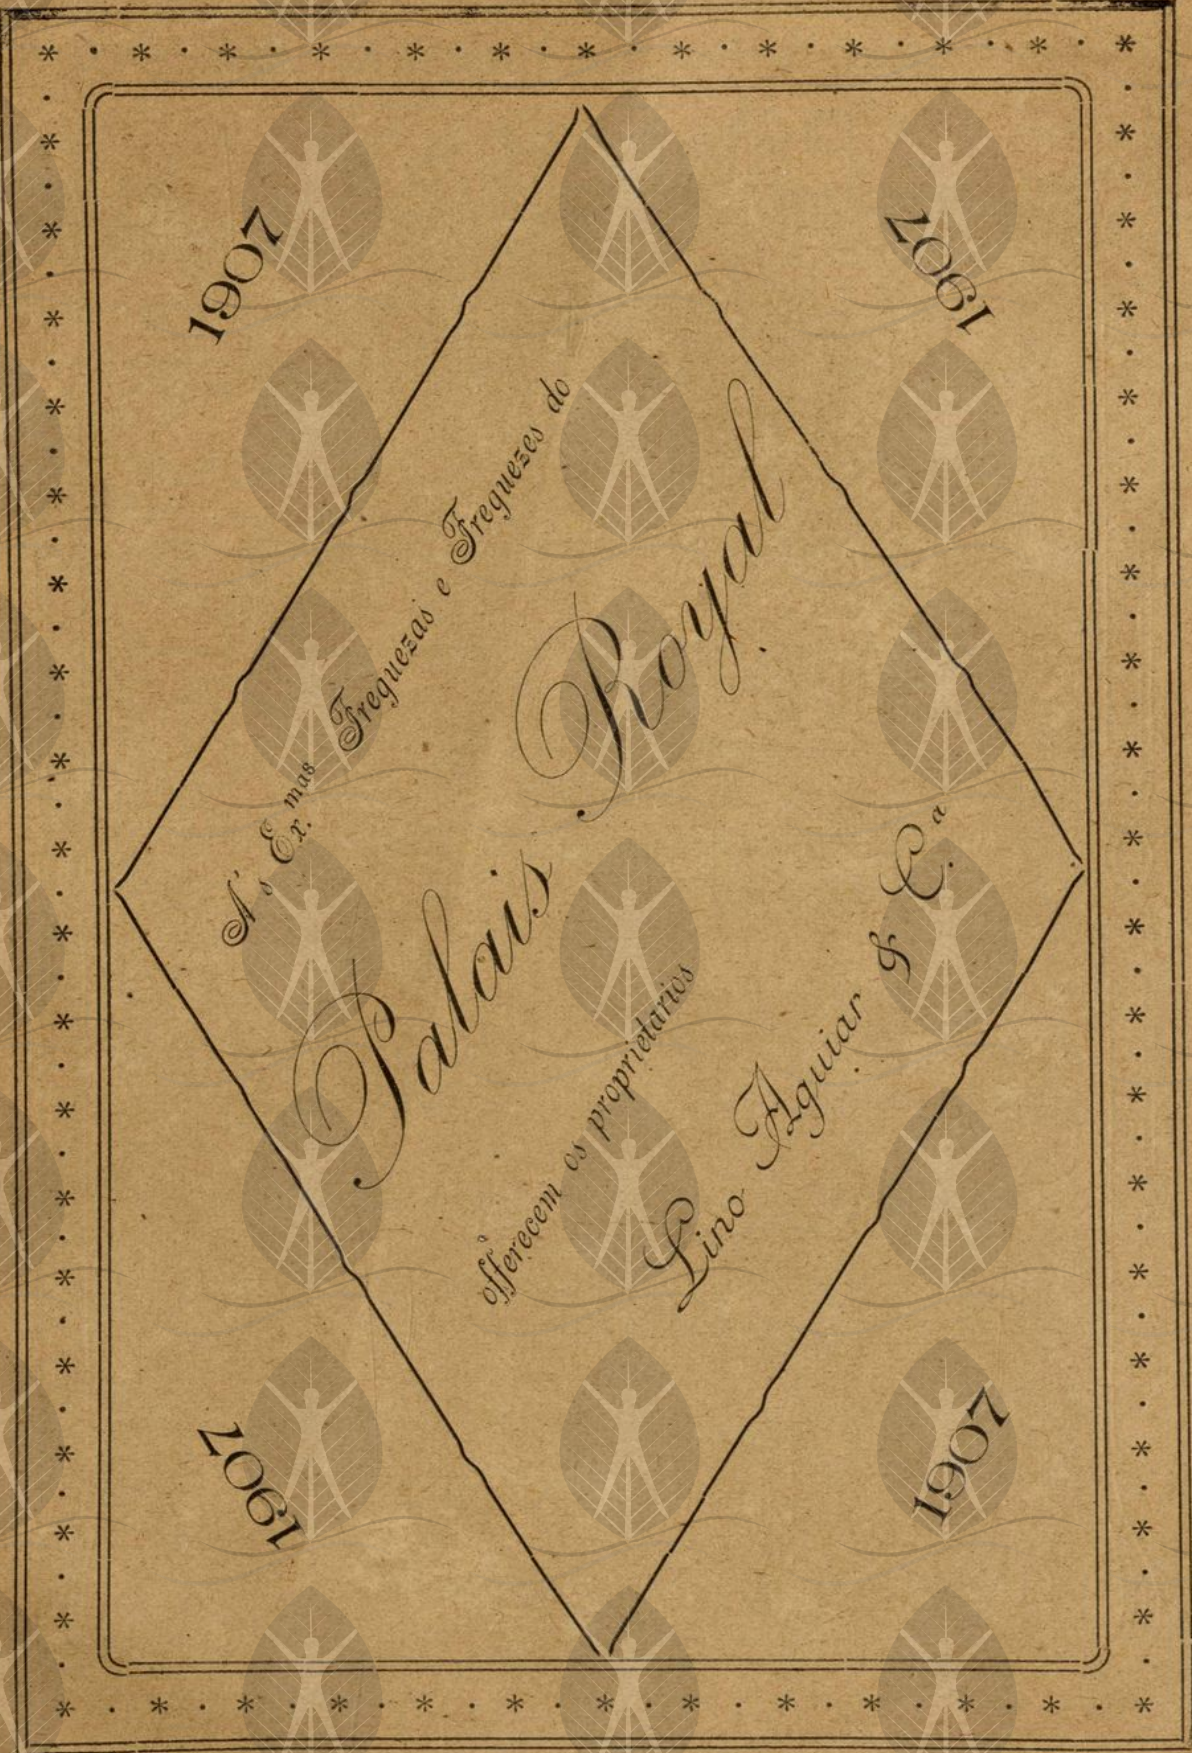 1907
1907
A's Ex.mas Freguezas e Freguezes do
Palais Royal
offerecem os proprietarios
Lino Aguiar & C.a
1907
1907